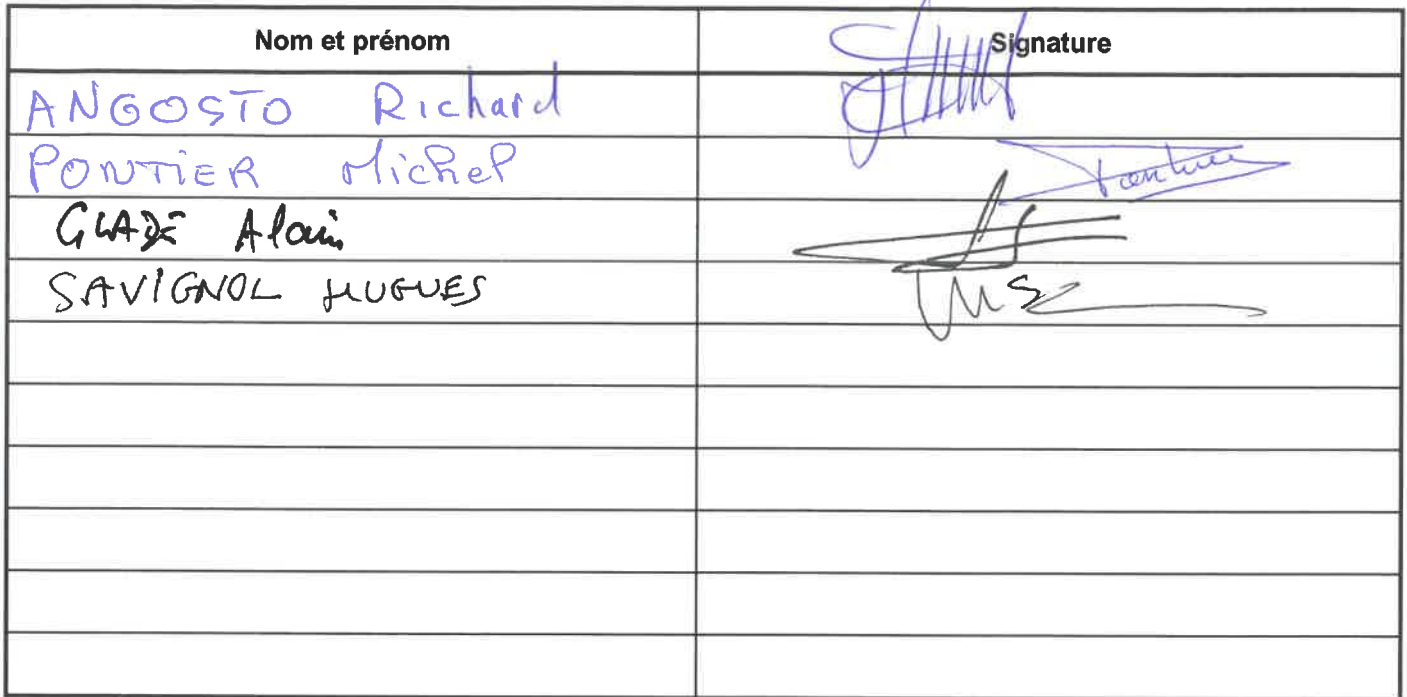 Nom et prénom Signature
ANGOSTO Richard
PONTIER Michel Pontier
GLADE Alain
SAVIGNOL HUGUES